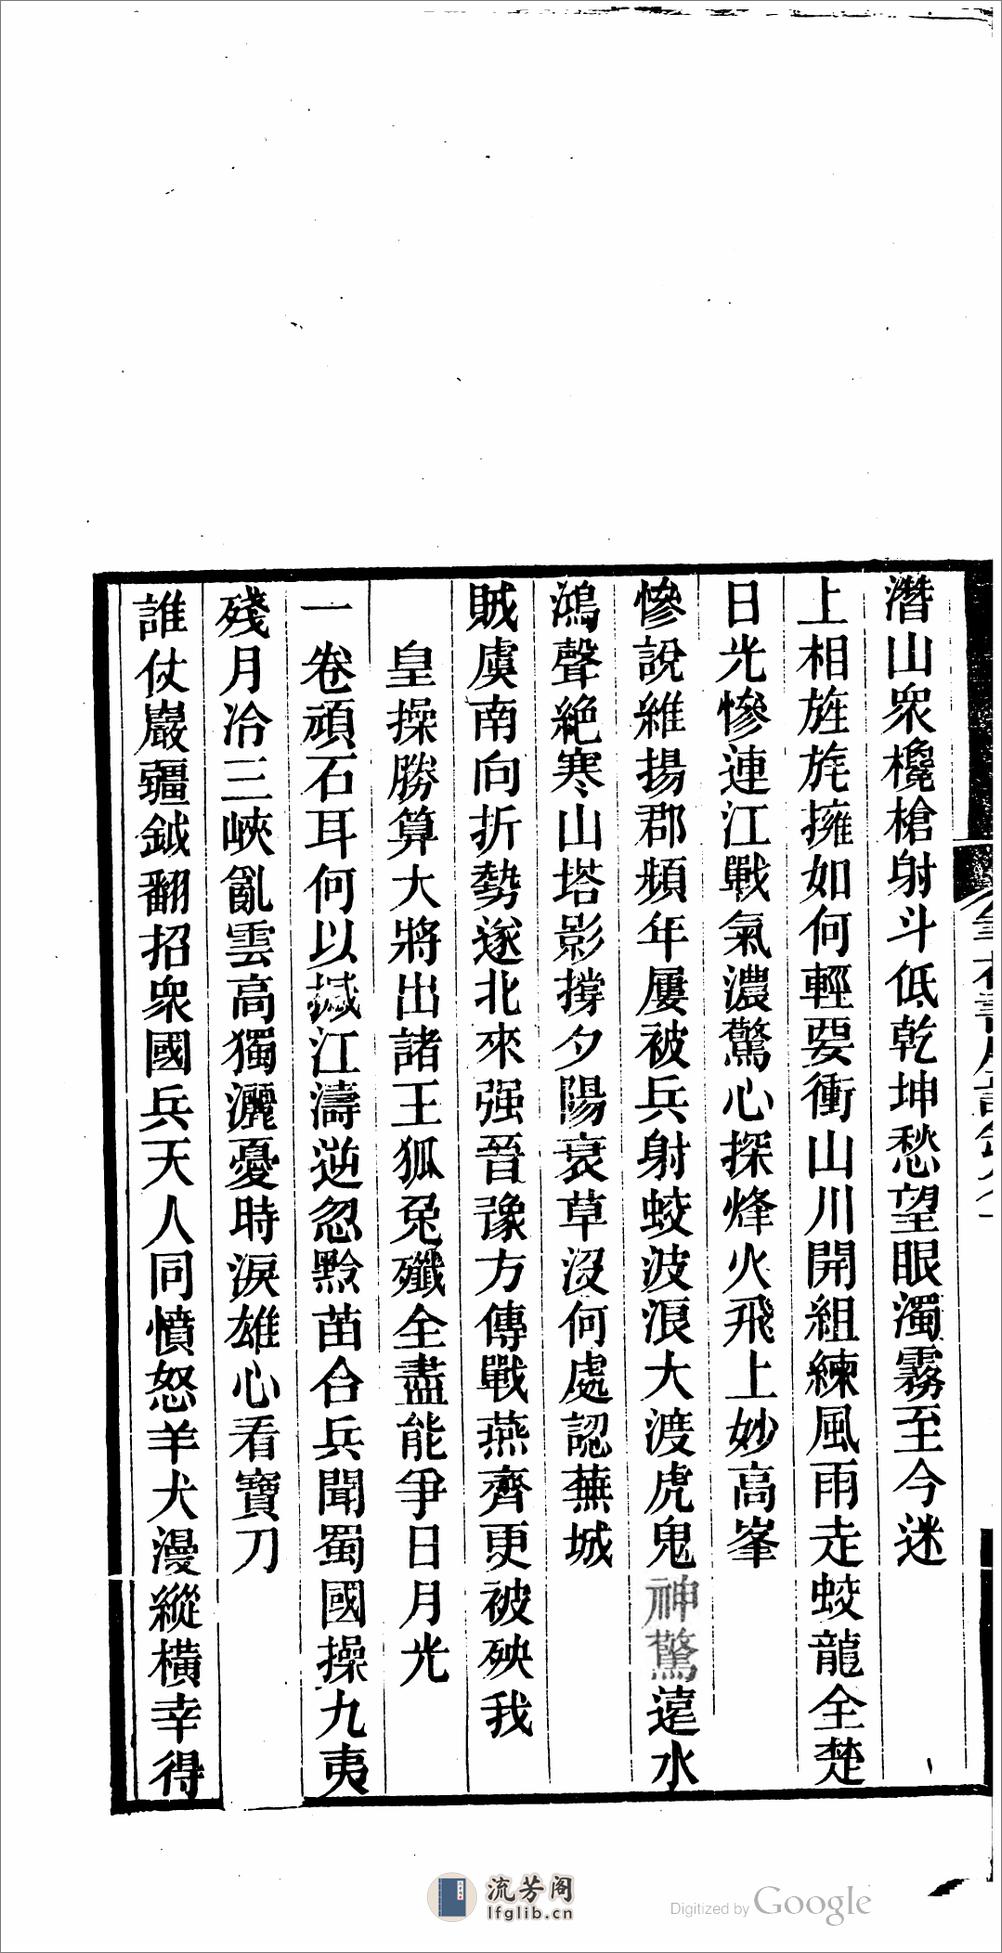 潛山衆欃槍射斗低乾坤愁望眼濁霧至今迷
上相旌旄擁如何輕要衝山川開組練風雨走蛟龍全楚
日光慘連江戰氣濃驚心探烽火飛上妙高峯
慘說維揚郡頻年屢被兵射蛟波浪大渡虎鬼神驚遠水
鴻聲絕寒山塔影撐夕陽衰草沒何處認蕪城
賊虞南向折勢遂北來强晉豫方傳戰燕齊更被殃我
皇操勝算大將出諸王狐兔殲全盡能爭日月光
一卷頑石耳何以撼江濤逆忽黔苗合兵聞蜀國操九夷
殘月冷三峽亂雲高獨灑憂時淚雄心看寶刀
誰仗巖疆鉞翻招衆國兵天人同憤怒羊犬漫縱橫幸得
流芳阁
lfglib.cn
Digitized by Google